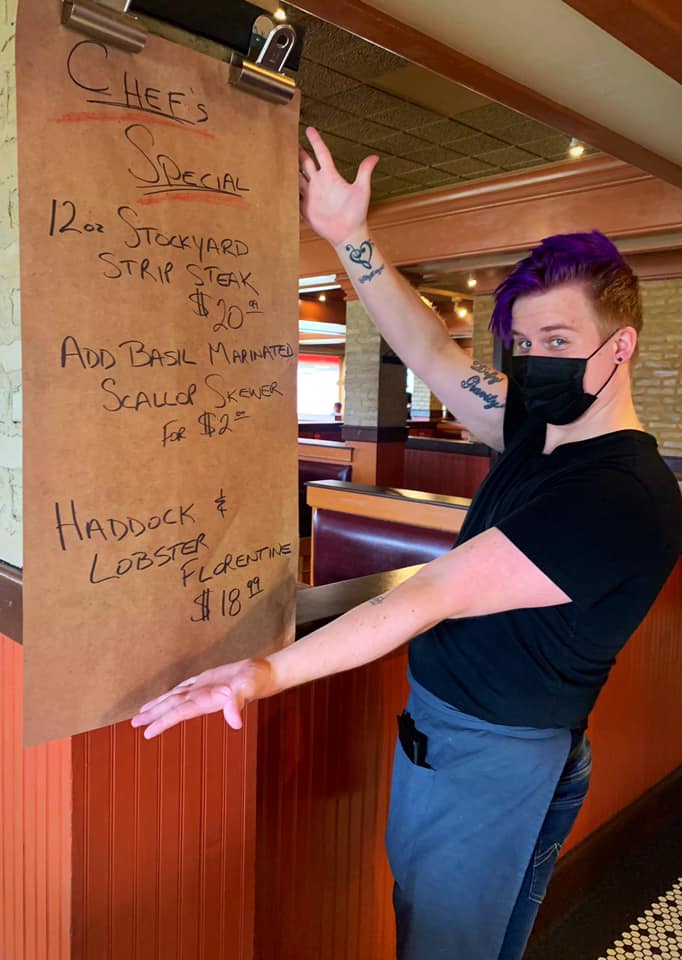 CHEF'S
SPECIAL
12oz STOCKYARD
STRIP STEAK
$20.99
ADD BASIL MARINATED
SCALLOP SKEWER
FOR $2.00
HADDOCK &
LOBSTER
FLORENTINE
$18.99
Defy
Gravity